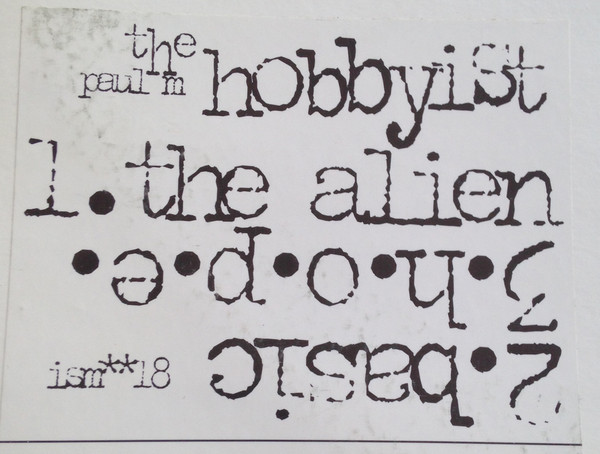 the
paul m
hobbyist
1. the alien
2.basic
3.h.o.p.e.
ism**18